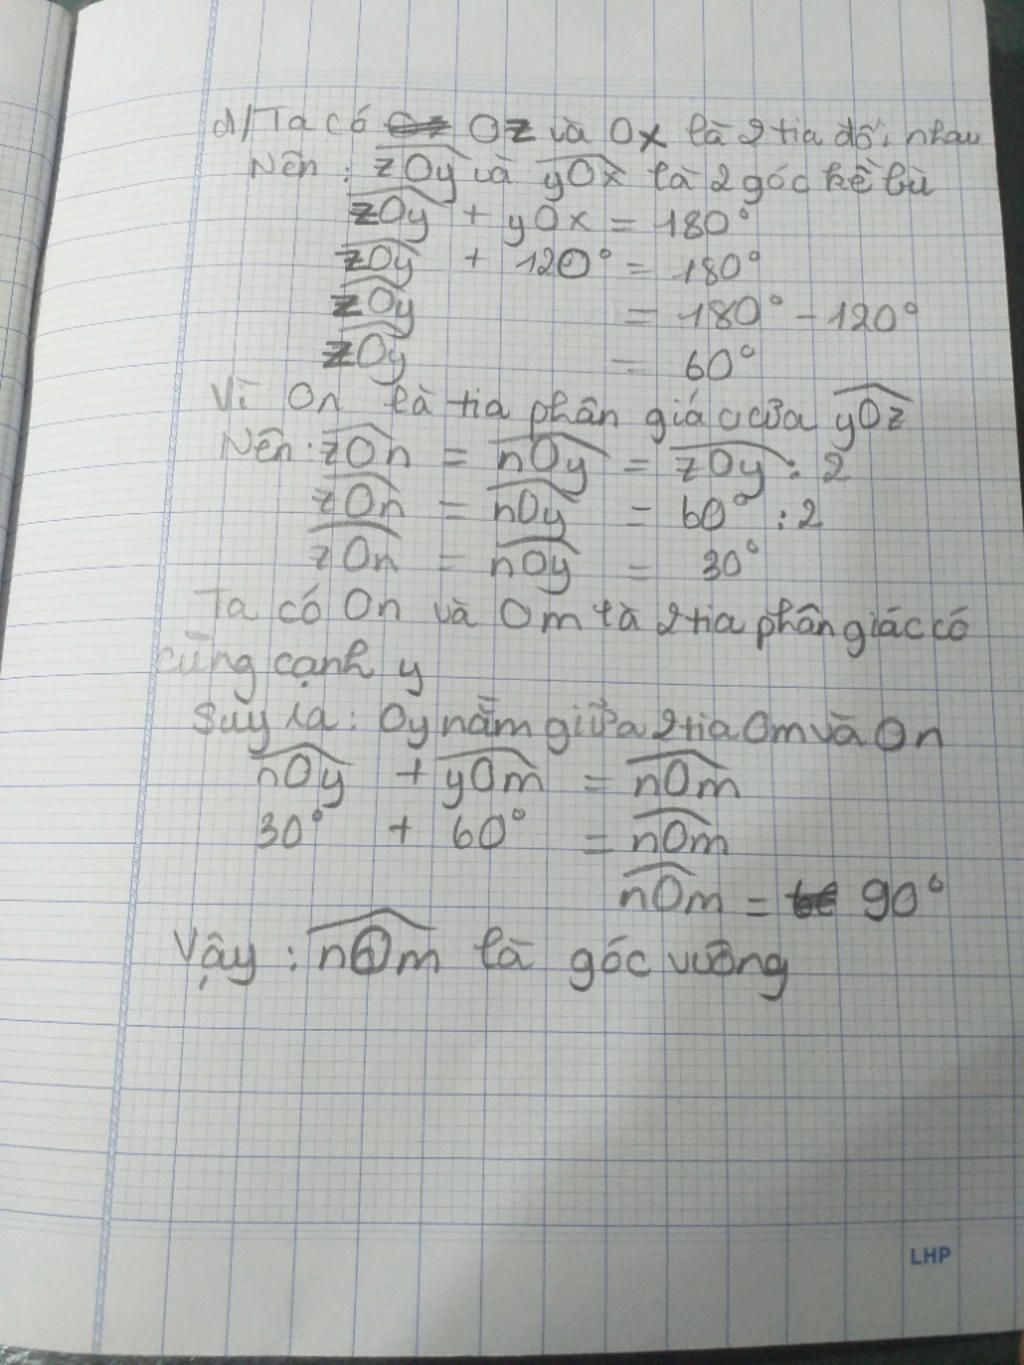 d/ Ta có Oz và Ox là 2 tia đối nhau
Nên: zOy và yOx là 2 góc kề bù
zOy + yOx = 180°
zOy + 120° = 180°
zOy = 180° - 120°
zOy = 60°
Vì On là tia phân giác của yOz
Nên: zOn = nOy = zOy : 2
zOn = nOy = 60° : 2
zOn = nOy = 30°
Ta có On và Om là 2 tia phân giác có
cùng cạnh y
Suy ra: Oy nằm giữa 2 tia Om và On
nOy + yOm = nOm
30° + 60° = nOm
nOm = 90°
Vậy: nOm là góc vuông
LHP